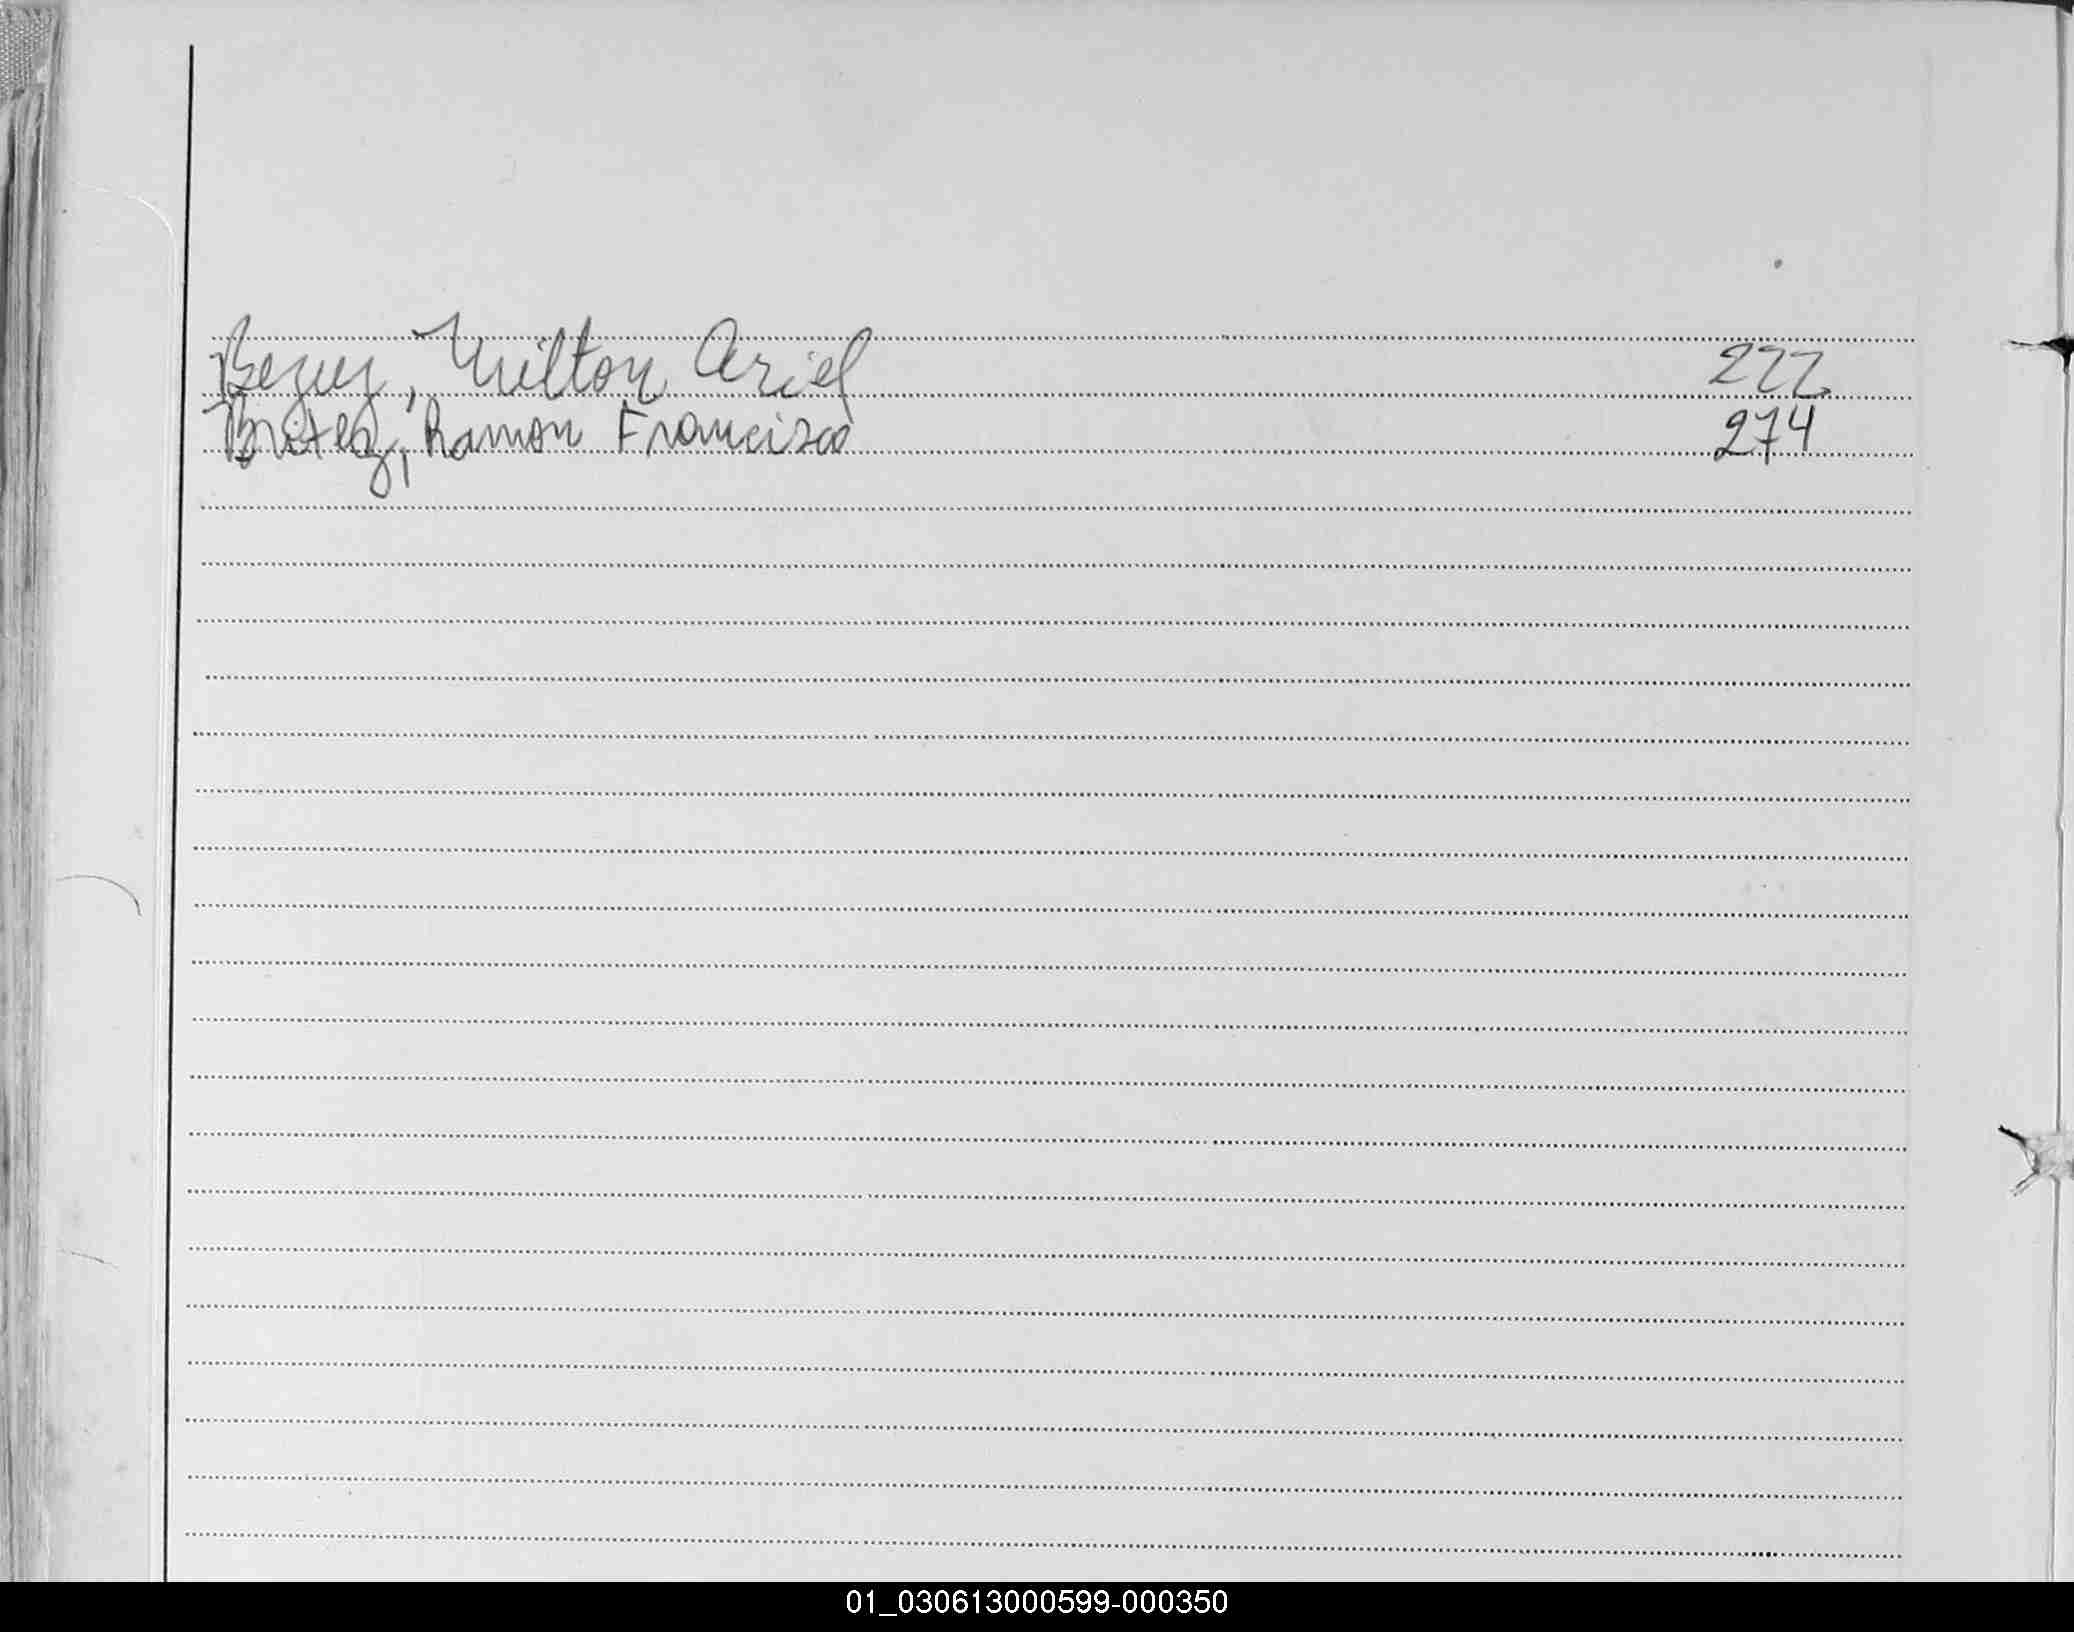 Milton Ariel 222
Britez, Ramon Francisco 274
01_030613000599-000350